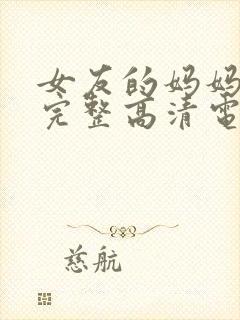 女友的妈妈
完整高清電
慈航